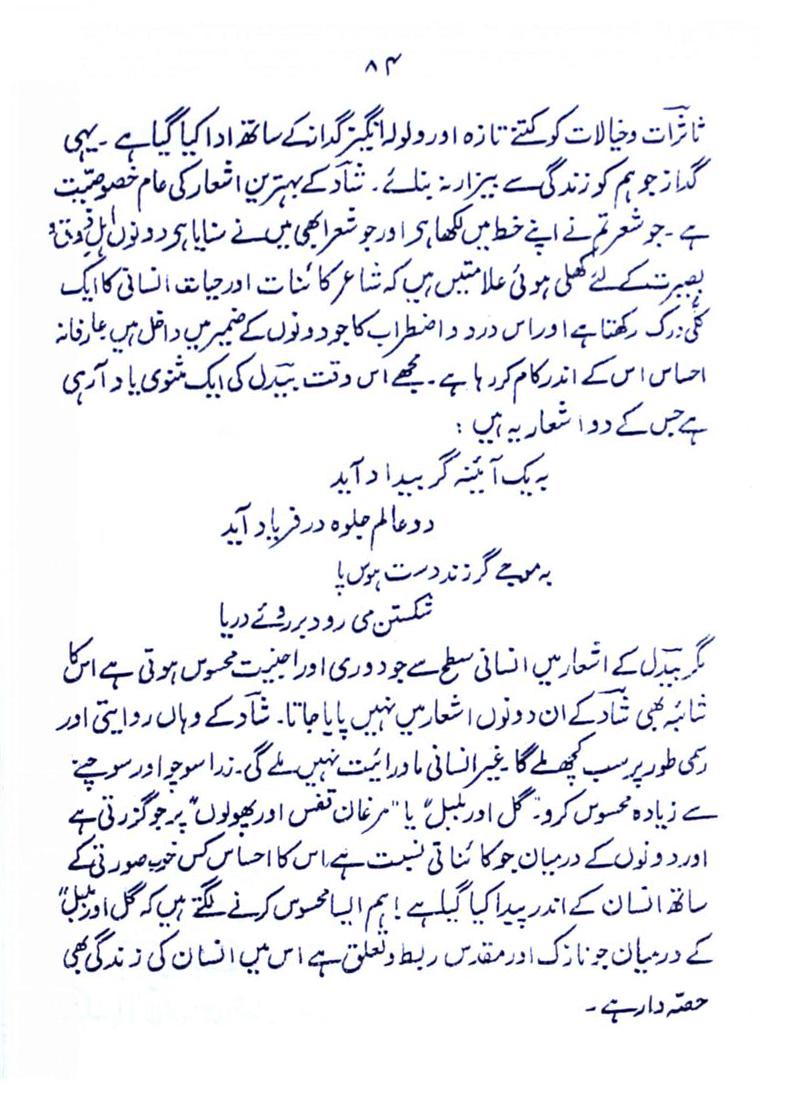 ۸۴
تاثرات و خیالات کو کتنے تازہ اور ولولہ انگیز گداز کے ساتھ ادا کیا گیا ہے ۔ یہی
گداز جو ہم کو زندگی سے بیزار نہ بنائے ۔ شادؔ کے بہترین اشعار کی عام خصوصیت
ہے ۔ جو شعر تم نے اپنے خط میں لکھا ہے اور جو شعر ابھی میں نے سنایا ہے دونوں اہلِ ذوق و
بصیرت کے لئے کھلی ہوئی علامتیں ہیں کہ شاعر کائنات اور حیات انسانی کا ایک
کلّی درک رکھتا ہے اور اس درد و اضطراب کا جو دونوں کے ضمیر میں داخل ہیں عارفانہ
احساس اس کے اندر کام کر رہا ہے ۔ مجھے اس وقت بیدلؔ کی ایک مثنوی یاد آ رہی
ہے جس کے دو اشعار یہ ہیں :
بہ یک آئینہ گر بیداد آید
دو عالم جلوہ در فریاد آید
بہ موجے گر زند دست ہوس پا
شکستن می رود بر روئے دریا
مگر بیدلؔ کے اشعار میں انسانی سطح سے جو دوری اور اجنبیت محسوس ہوتی ہے اس کا
شائبہ بھی شادؔ کے ان دونوں اشعار میں نہیں پایا جاتا ۔ شادؔ کے وہاں روایتی اور
رسمی طور پر سب کچھ ملے گا ۔ غیر انسانی ماورائیت نہیں ملے گی ۔ ذرا سوچو اور سوچنے
سے زیادہ محسوس کرو ۔ "گل اور بلبل" یا "مرغان قفس اور پھولوں" پر جو گزرتی ہے
اور دونوں کے درمیان جو کائناتی نسبت ہے اس کا احساس کس خوب صورتی کے
ساتھ انسان کے اندر پیدا کیا گیا ہے ! ہم ایسا محسوس کرنے لگتے ہیں کہ "گل اور بلبل"
کے درمیان جو نازک اور مقدس ربط و تعلق ہے اس میں انسان کی زندگی بھی
حصّہ دار ہے ۔